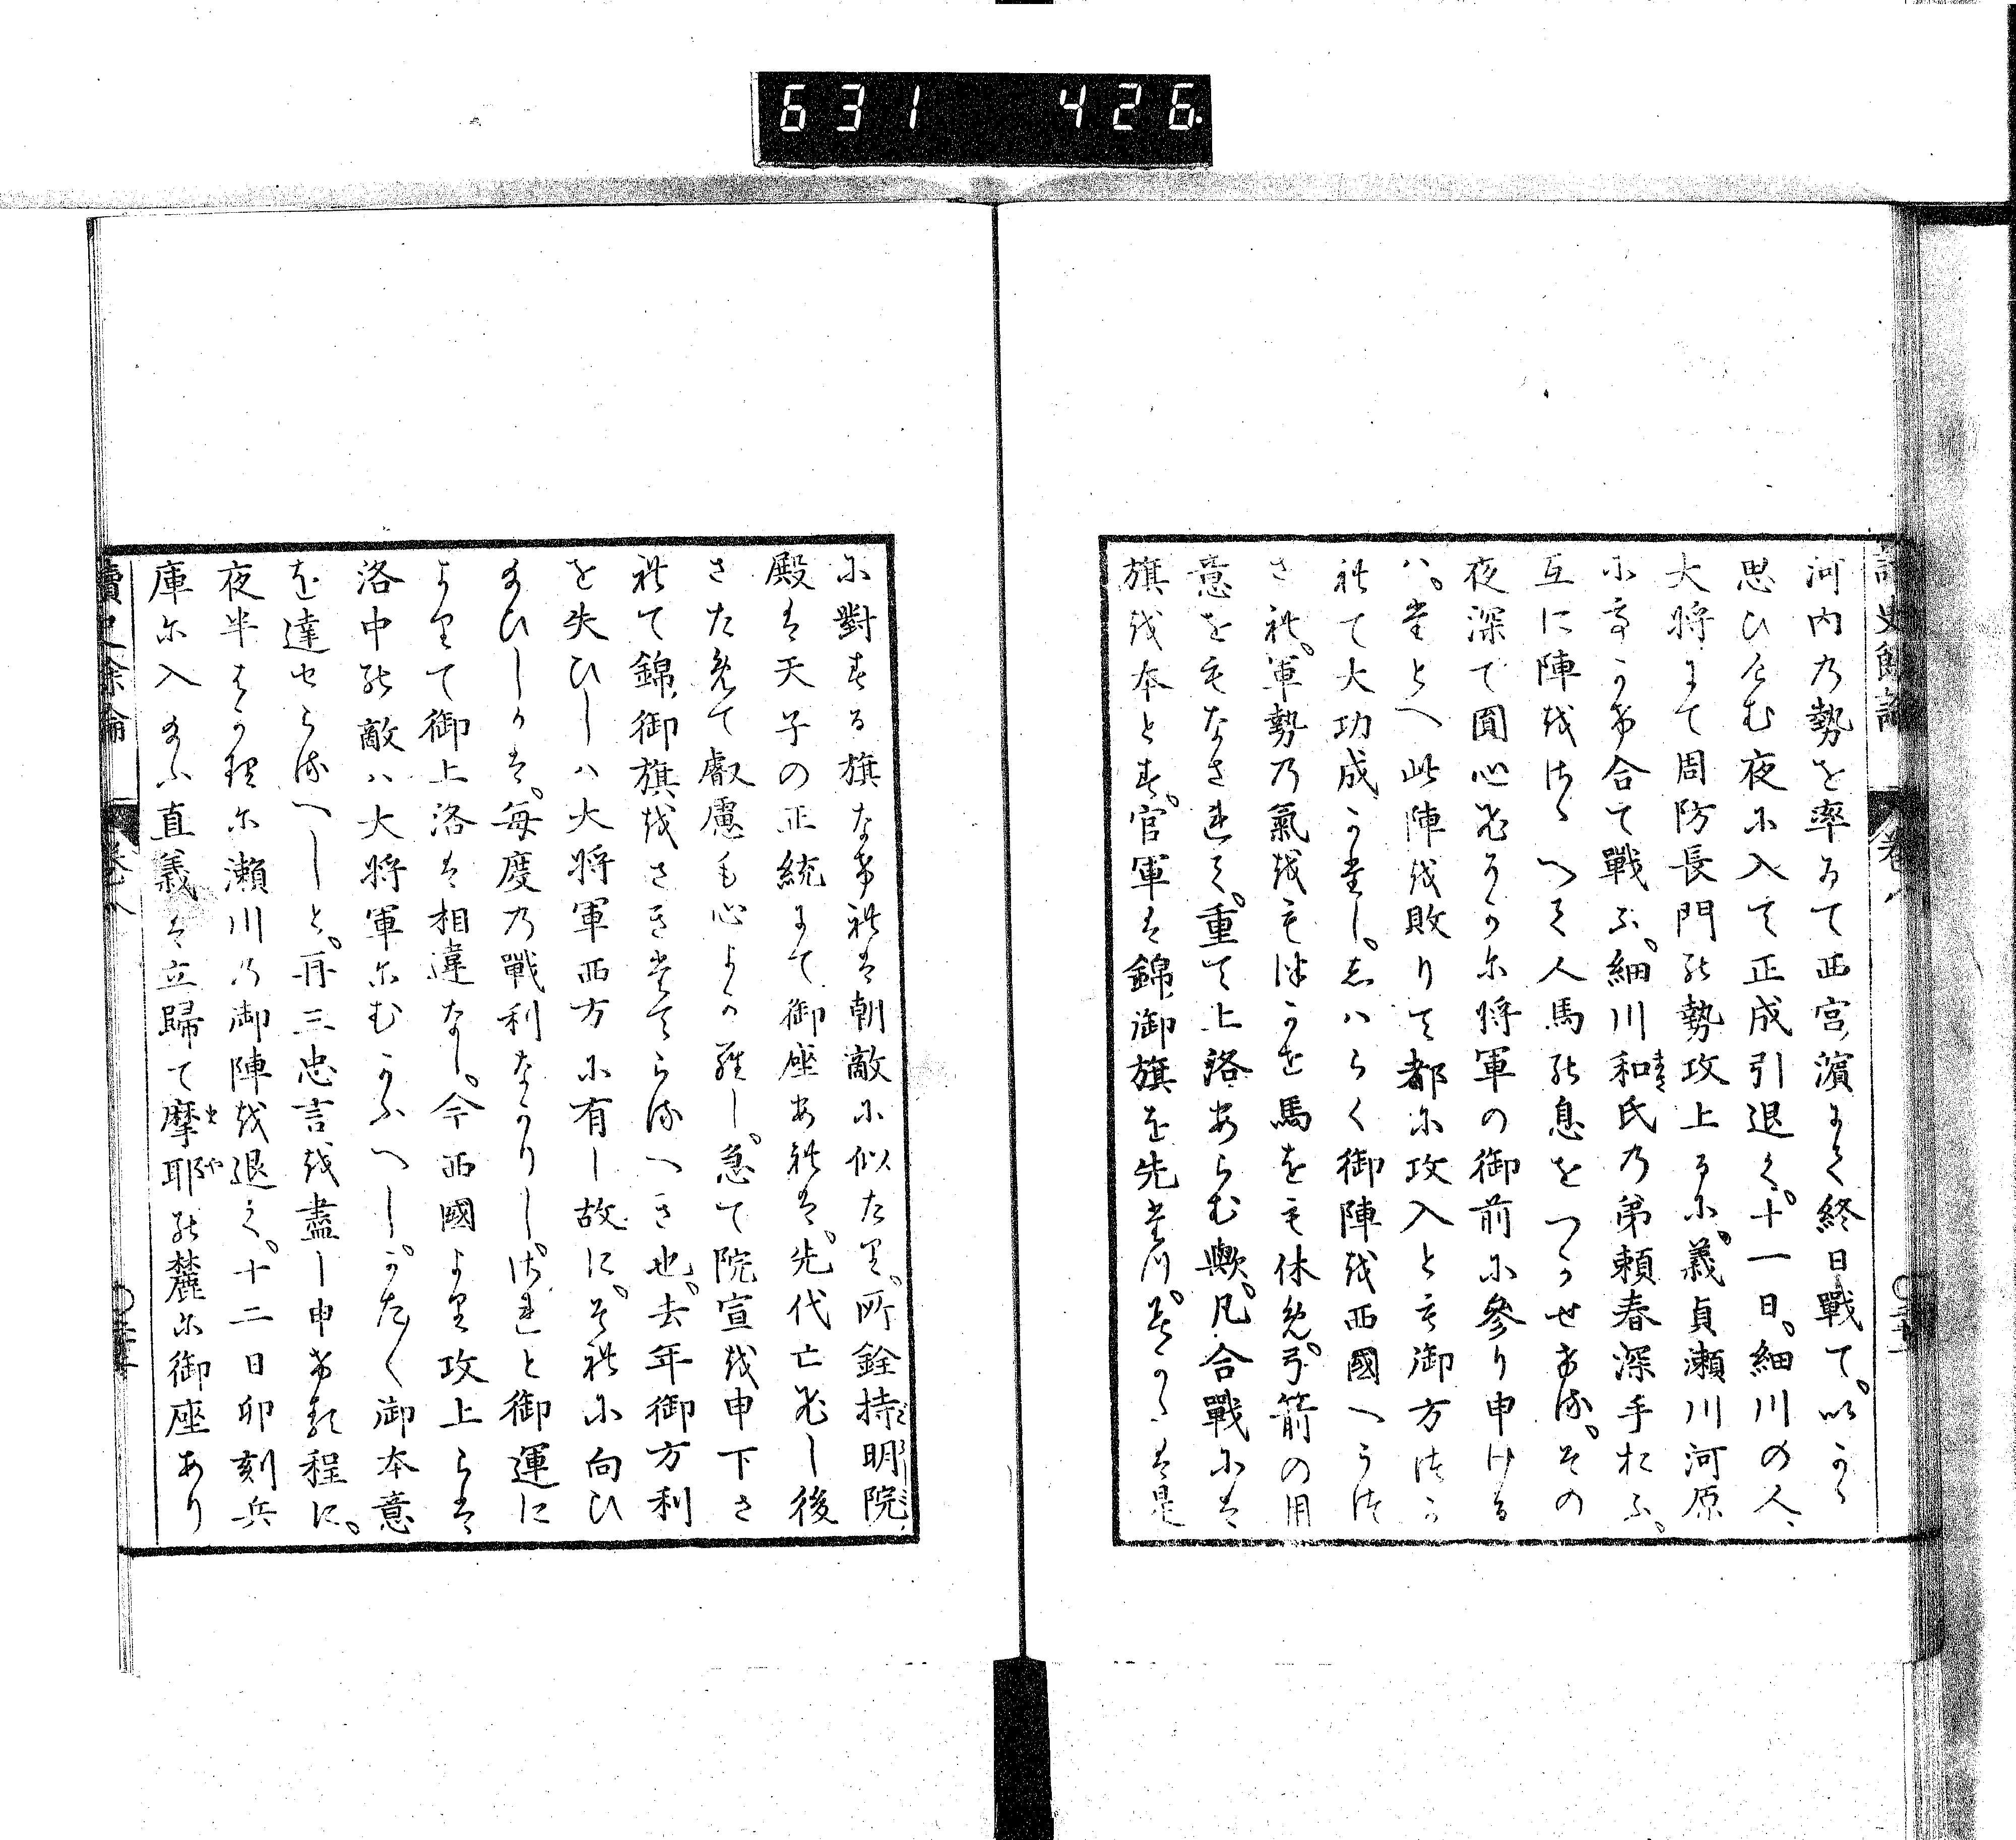 631 426
讀史餘論 卷八
河内乃勢を率ゐて西宮濱まて終日戰て。いかゝ
思ひけむ夜に入て正成引退く。十一日。細川の人、
大将にて周防長門の勢攻上るに。義貞瀬川河原
に馳合て戰ふ。細川和氏乃弟頼春深手おふ。
互に陣をはゝへて人馬の息をつかせける。その
夜深て圓心ひそかに将軍の御前に參り申ける
ハ。たとへ此陣を敗りて都に攻入と云御方つか
れて大功成かたし。しハらく御陣を西國へうつ
され。軍勢乃氣をもつかせ馬をも休め。弓箭の用
意をもなされて。重て上洛あらむ歟。凡合戰には
旗を本とす。官軍は錦御旗を先たつ。そのかは是
に對する旗なけれは朝敵に似たり。所銓持明院
殿は天子の正統にて御座あれは。先代亡ひし後
さためて叡慮も心よからし。急て院宣を申下さ
れて錦御旗をさきたてらるへき也。去年御方利
を失ひしハ大将軍西方に有し故に。それに向ひ
給ひしかは。毎度乃戰利なかりし。されと御運に
よりて御上洛は相違なし。今西國より攻上らは
洛中の敵ハ大将軍にむかふへし。かたく御本意
を達せらるへしと。再三忠言を盡し申ける程に。
夜半はかりに瀬川の御陣を退く。十二日卯刻兵
庫に入給ふ直義は立歸て摩耶の麓に御座あり
讀史餘論 卷八